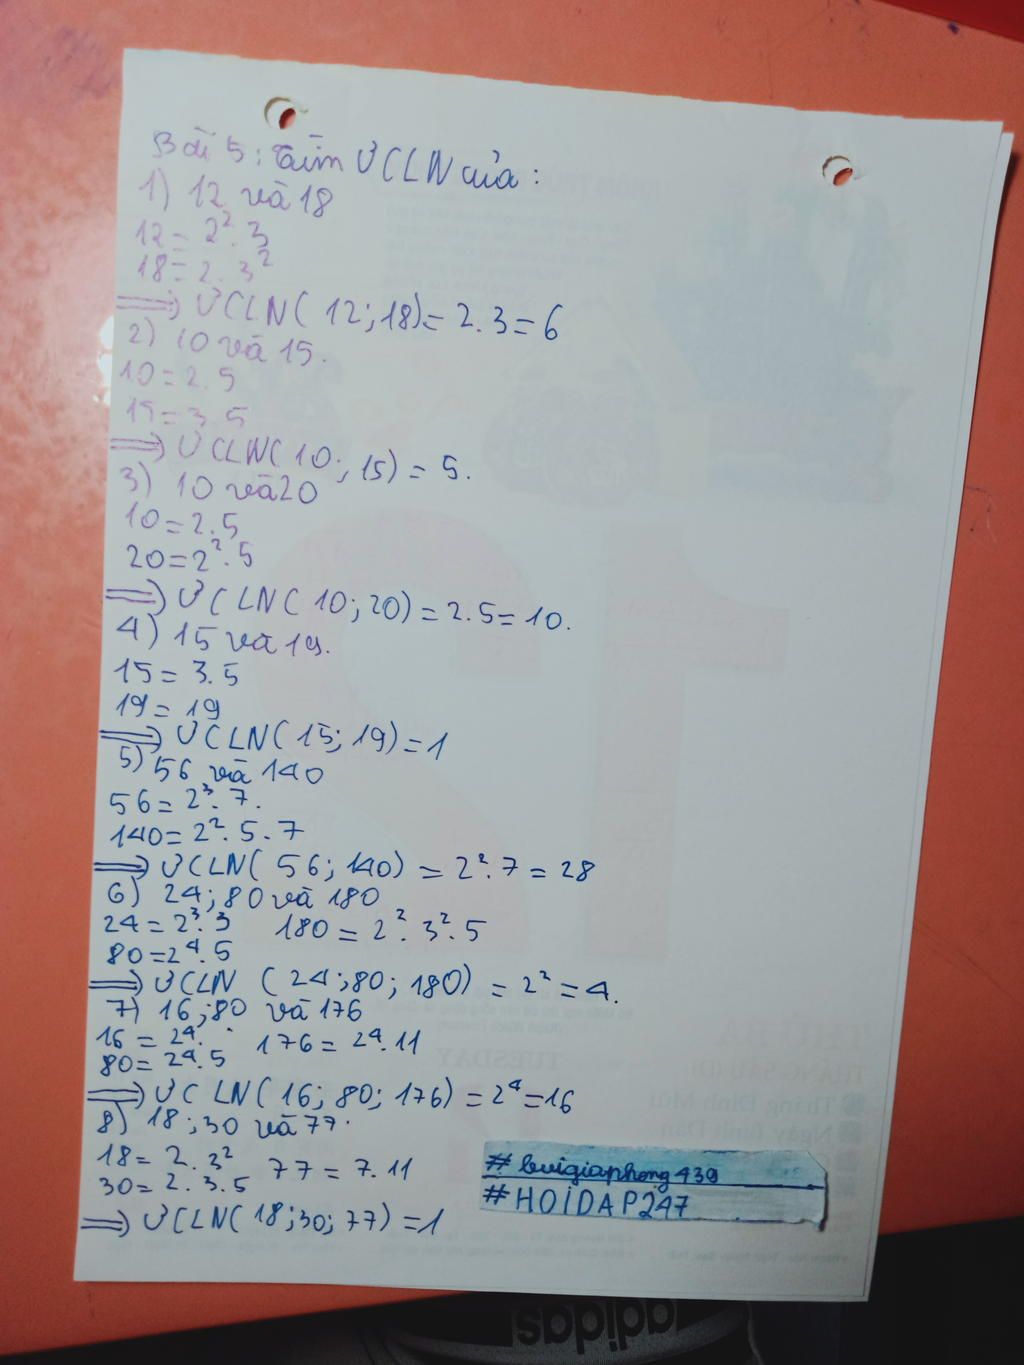 Bài 5: Tìm ƯCLN của:
1) 12 và 18
12 = 2². 3
18 = 2. 3²
=> ƯCLN( 12; 18) = 2. 3 = 6
2) 10 và 15.
10 = 2. 5
15 = 3. 5
=> ƯCLN( 10; 15) = 5.
3) 10 và 20
10 = 2. 5
20 = 2². 5
=> ƯCLN( 10; 20) = 2. 5 = 10.
4) 15 và 19.
15 = 3. 5
19 = 19
=> ƯCLN( 15; 19) = 1
5) 56 và 140
56 = 2³. 7.
140 = 2². 5. 7
=> ƯCLN( 56; 140) = 2². 7 = 28
6) 24; 80 và 180
24 = 2³. 3 180 = 2². 3². 5
80 = 2⁴. 5
=> ƯCLN ( 24; 80; 180) = 2² = 4.
7) 16; 80 và 176
16 = 2⁴. 176 = 2⁴. 11
80 = 2⁴. 5
=> ƯCLN( 16; 80; 176) = 2⁴ = 16
8) 18; 30 và 77.
18 = 2. 3² 77 = 7. 11
30 = 2. 3. 5
=> ƯCLN( 18; 30; 77) = 1
# buigiaphong439
# HOIDAP247
TUESDAY
Tháng Đinh Mùi
Ngày Bính Dần
adidas